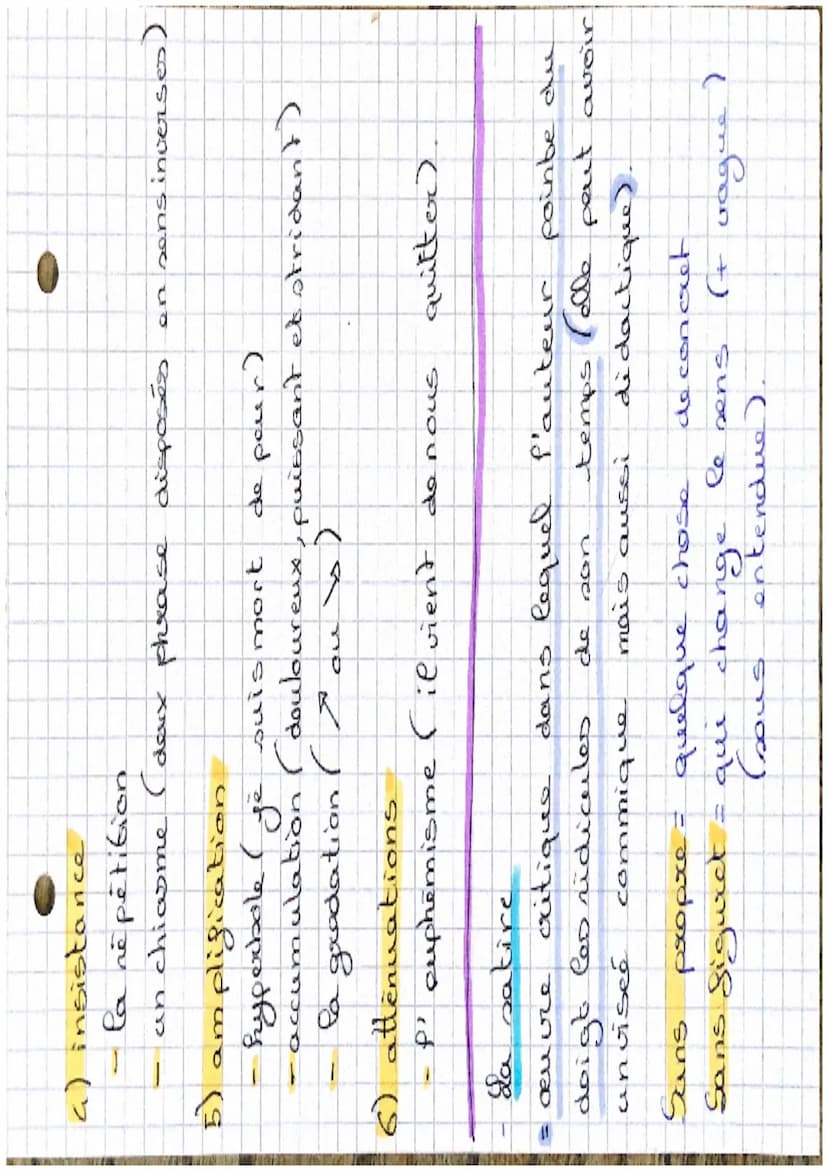 4) insistance
- la répétition
- un chiasme (deux phrase disposés en sens inverses)
5) amplification
- hyperbole (je suis mort de peur)
- accumulation (douloureux, puissant et stridant)
- la gradation (↗ ou ↘)
6) atténuations
- l'euphémisme (il vient de nous quitter).
- La satire
= œuvre critique dans lequel l'auteur pointe du
doigt les ridicules de son temps (elle peut avoir
un viseé commique mais aussi didactique).
Sens propre = quelque chose de concret
Sens figuret = qui change le sens (+ vague)
(sous entendue).